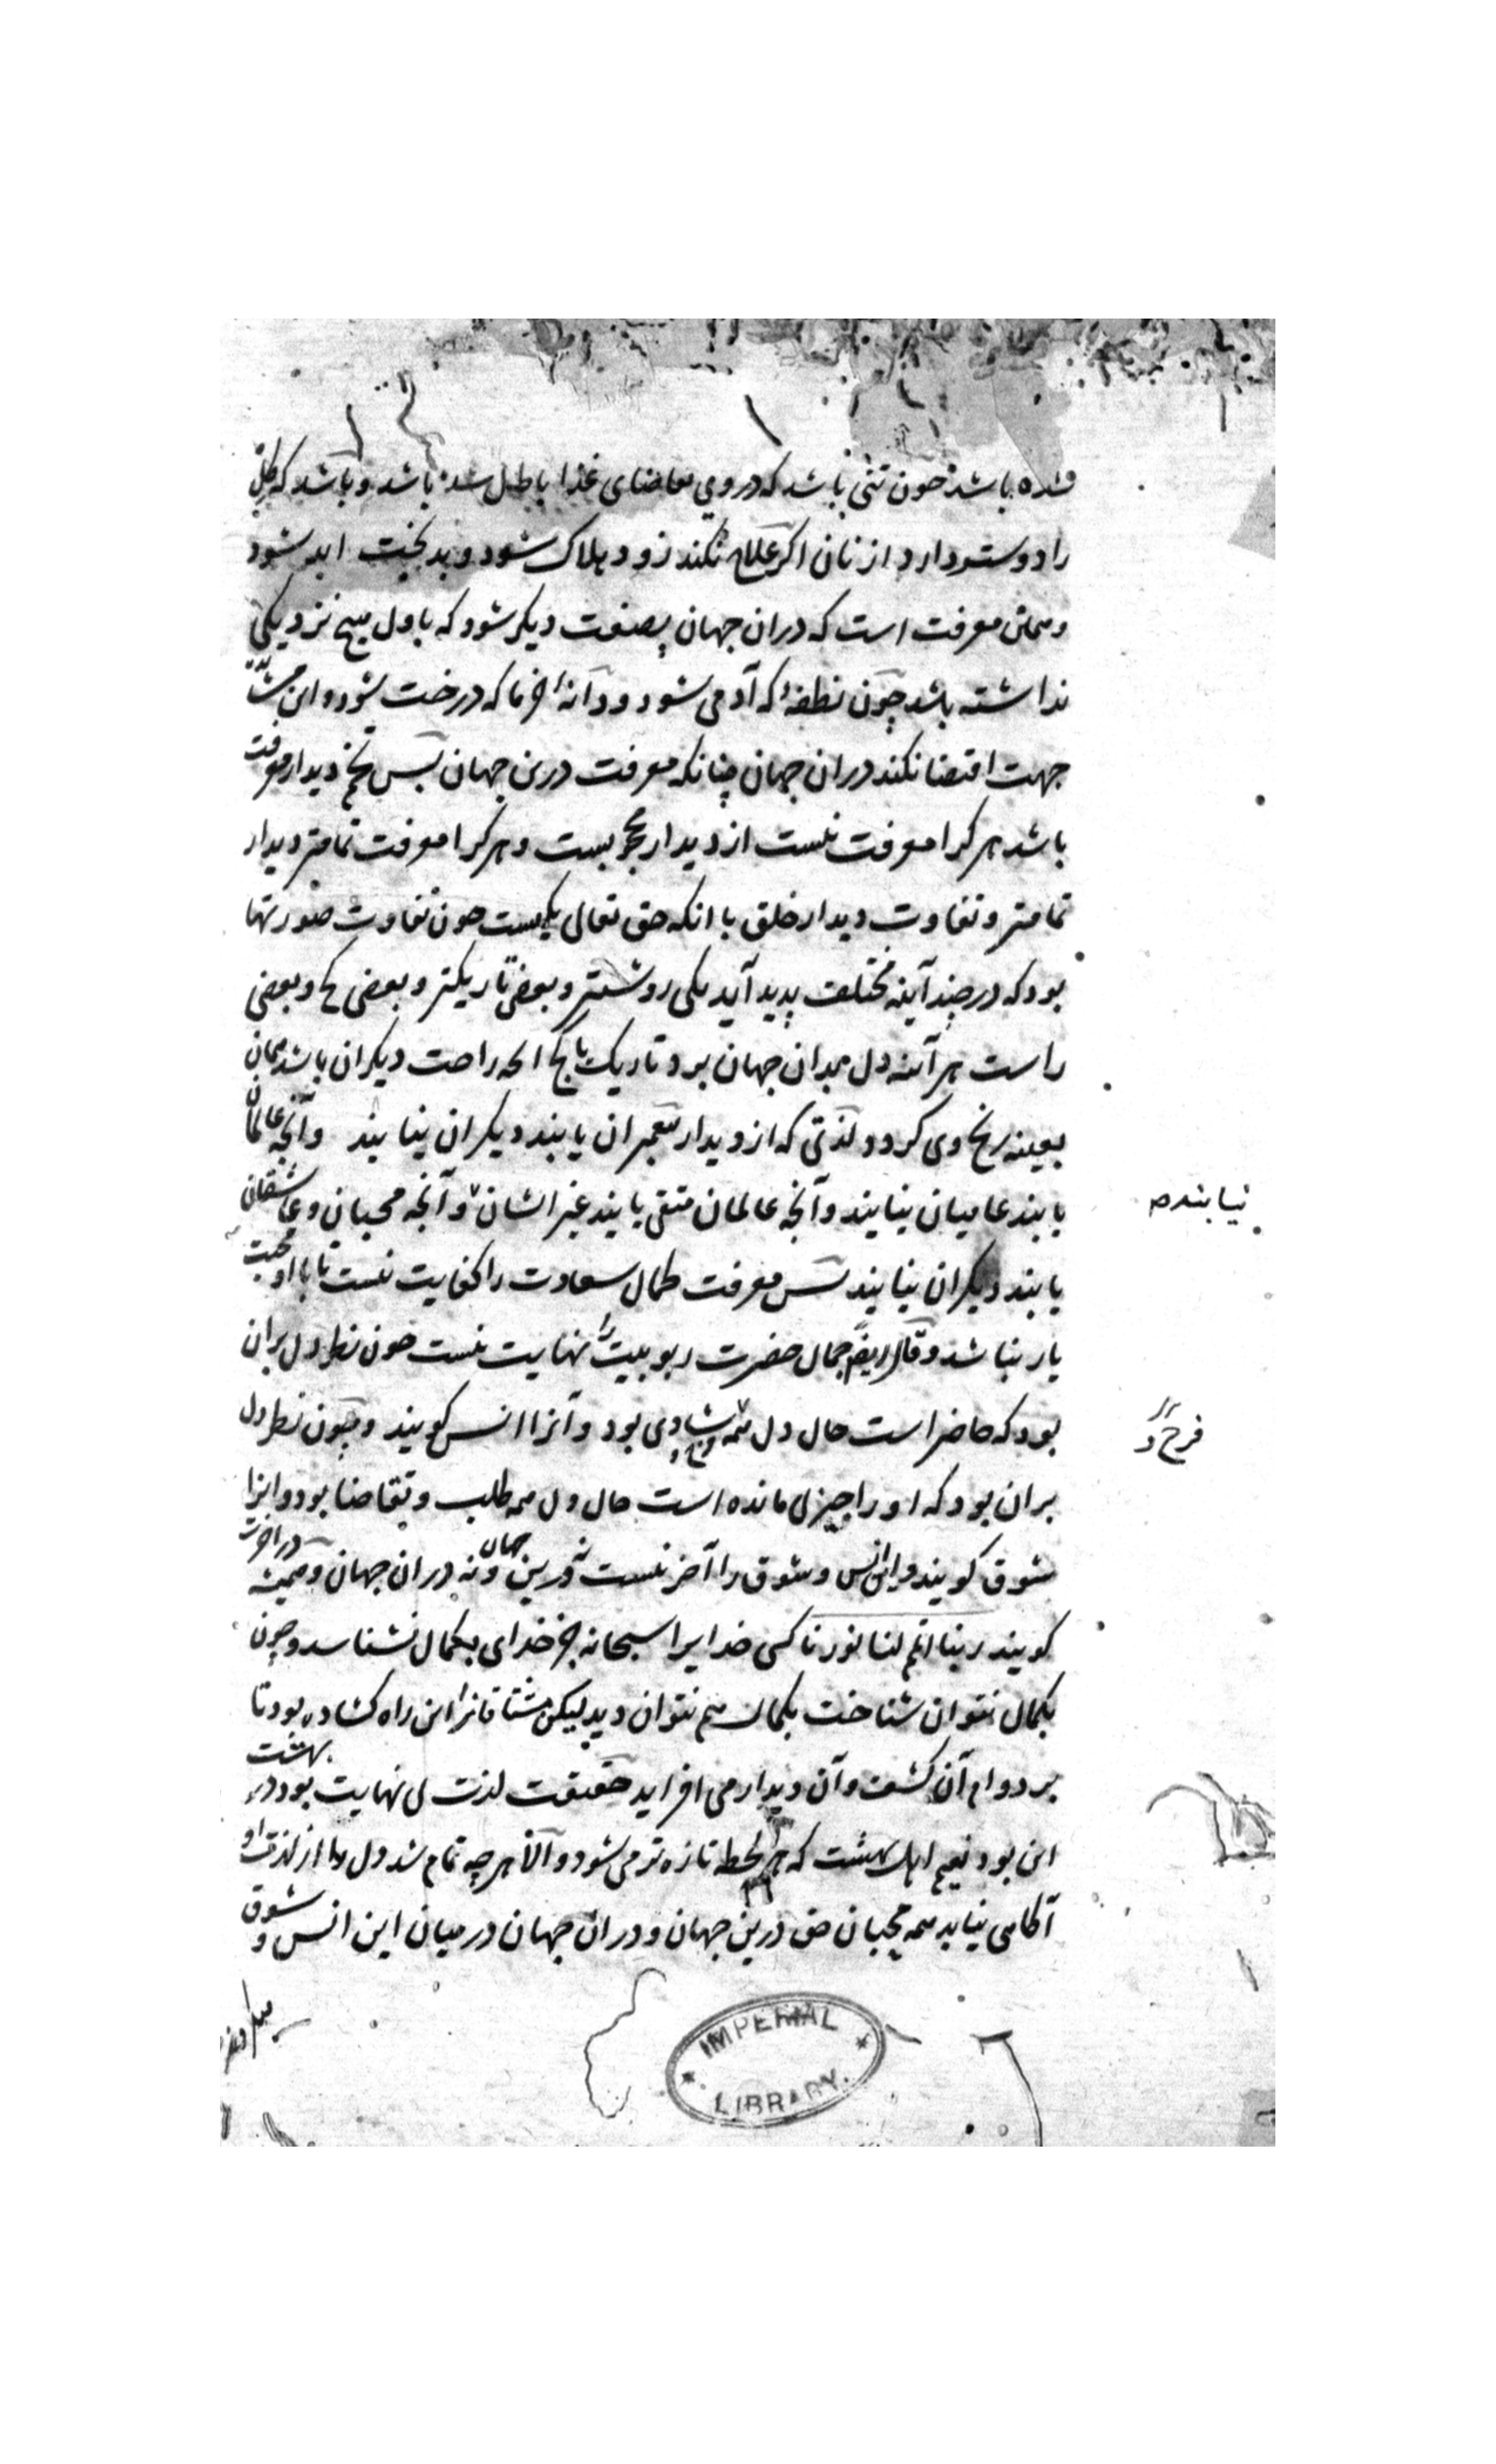 شده باشد چون تنی باشد که دروی تقاضای غذا باطل شده باشد و باشد که گل
را دوستر دارد از نان اگر علاج نکند زود هلاک شود و بدبخت ابد شود
و همان معرفت است که دران جهان بصفت دیگر شود که باول هیچ نزدیکی
نداشته باشد چون نطفۀ که آدمی شود و دانۀ خرما که درخت شود و این مشاهده
جهت اقتضا نکند دران جهان چنانکه معرفت درین جهان پس تخم دیدار معرفت
باشد هر کرا معرفت نیست از دیدار محجوبست و هر کرا معرفت تمامتر دیدار
تمامتر و تفاوت دیدار خلق با انکه حق تعالی یکیست چون تفاوت صورتها
بود که در چند آینه مختلف پدید آید یکی روشنتر و بعضی تاریکتر و بعضی کج و بعضی
راست هر آینه دل بدان جهان برد تاریک یا کج انچه راحت دیگران باشد همان
بعینه رنج وی گردد لذتی که از دیدار پیغمبران یابند دیگران نیابند وآنچه عالمان
یابند عامیان نیابند وآنچه عالمان متقی یابند غیر ایشان و آنچه محبان و عاشقان
نیابند
یابند دیگران نیابند پس معرفت کمال سعادت را کفایت نیست تا با او محبت
یار نباشد و قال ایضا جمال حضرت ربوبیت را نهایت نیست چون نظر دل بران
بود که حاضر است حال دل همه شادی بود و آنرا انس گویند و چون نظر دل
فرح و
بران بود که او را چیزی مانده است حال دل همه طلب و تقاضا بود و اینرا
شوق گویند و این انس و شوق را آخر نیست نه درین جهان و نه دران جهان و همیشه در آخرت
گویند ربنا اتمم لنا نورنا کسی خدایرا سبحانه جز خدای بکمال نشناسد و چون
بکمال نتوان شناخت بکمال هم نتوان دید لیکن مشتاقانرا این راه کشاده بود تا
بر دوام آن کشف و آن دیدار می افزاید حقیقت لذت بی نهایت بود در بهشت
این بود نعیم اهل بهشت که هر لحظه تازه تر می شود و الا هر چه تمام شد دل را از لذت او
آگاهی نیابد همه محبان حق درین جهان و دران جهان در میان این انس و شوق
IMPERIAL LIBRARY.